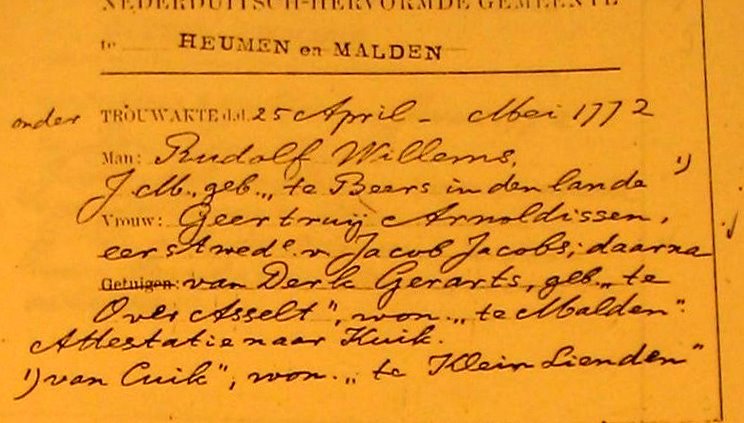 NEDERDUITSCH-HERVORMDE GEMEENTE
te HEUMEN en MALDEN
onder TROUWAKTE d.d. 25 April - Mei 1772
Man: Rudolf Willems,
J.M., geb. „te Beers in den lande ¹)
Vrouw: Geertruij Arnoldissen,
eerst wede v. Jacob Jacobs; daarna
Getuigen: van Derk Gerarts, geb. „te
Over Asselt", won. „te Malden".
Attestatie naar Kuik.
¹) van Cuik", won. „te Klein Lienden"